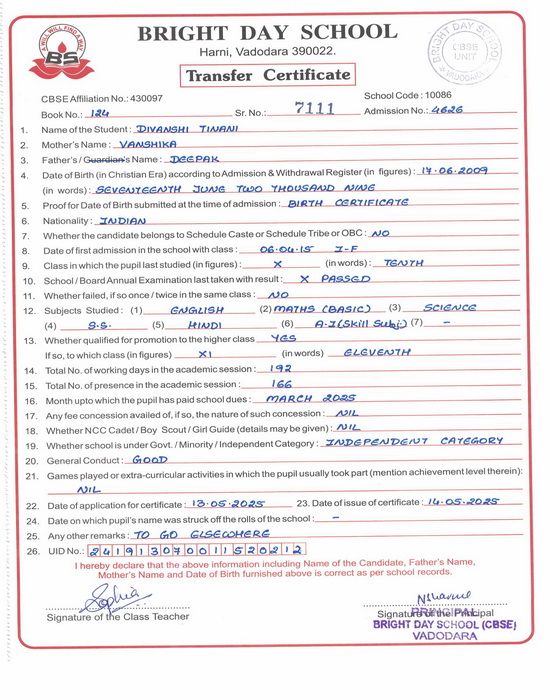 A WILL WILL FIND A WAY
BS
BRIGHT DAY SCHOOL
Harni, Vadodara 390022.
Transfer Certificate
BRIGHT DAY SCHOOL
CBSE
UNIT
VADODARA
CBSE Affiliation No.: 430097 School Code : 10086
Book No.: 124 Sr. No.: 7111 Admission No.: 4626
1. Name of the Student : DIVANSHI TINANI
2. Mother's Name : VANSHIKA
3. Father's / Guardian's Name : DEEPAK
4. Date of Birth (in Christian Era) according to Admission & Withdrawal Register (in figures) : 17.06.2009
(in words) : SEVENTEENTH JUNE TWO THOUSAND NINE
5. Proof for Date of Birth submitted at the time of admission : BIRTH CERTIFICATE
6. Nationality : INDIAN
7. Whether the candidate belongs to Schedule Caste or Schedule Tribe or OBC : NO
8. Date of first admission in the school with class : 06.04.15 I-F
9. Class in which the pupil last studied (in figures) : X (in words) : TENTH
10. School / Board Annual Examination last taken with result : X PASSED
11. Whether failed, if so once / twice in the same class : NO
12. Subjects Studied : (1) ENGLISH (2) MATHS (BASIC) (3) SCIENCE
(4) S.S. (5) HINDI (6) A.I (Skill Subj.) (7) –
13. Whether qualified for promotion to the higher class YES
If so, to which class (in figures) XI (in words) ELEVENTH
14. Total No. of working days in the academic session : 192
15. Total No. of presence in the academic session : 166
16. Month upto which the pupil has paid school dues : MARCH 2025
17. Any fee concession availed of, if so, the nature of such concession : NIL
18. Whether NCC Cadet / Boy Scout / Girl Guide (details may be given) : NIL
19. Whether school is under Govt. / Minority / Independent Category : INDEPENDENT CATEGORY
20. General Conduct : GOOD
21. Games played or extra-curricular activities in which the pupil usually took part (mention achievement level therein):
NIL
22. Date of application for certificate : 13.05.2025 23. Date of issue of certificate : 14.05.2025
24. Date on which pupil's name was struck off the rolls of the school : –
25. Any other remarks : TO GO ELSEWHERE
26. UID No.: 241913070011520212
I hereby declare that the above information including Name of the Candidate, Father's Name,
Mother's Name and Date of Birth furnished above is correct as per school records.
Signature of the Class Teacher
Signature of the Principal
PRINCIPAL
BRIGHT DAY SCHOOL (CBSE)
VADODARA